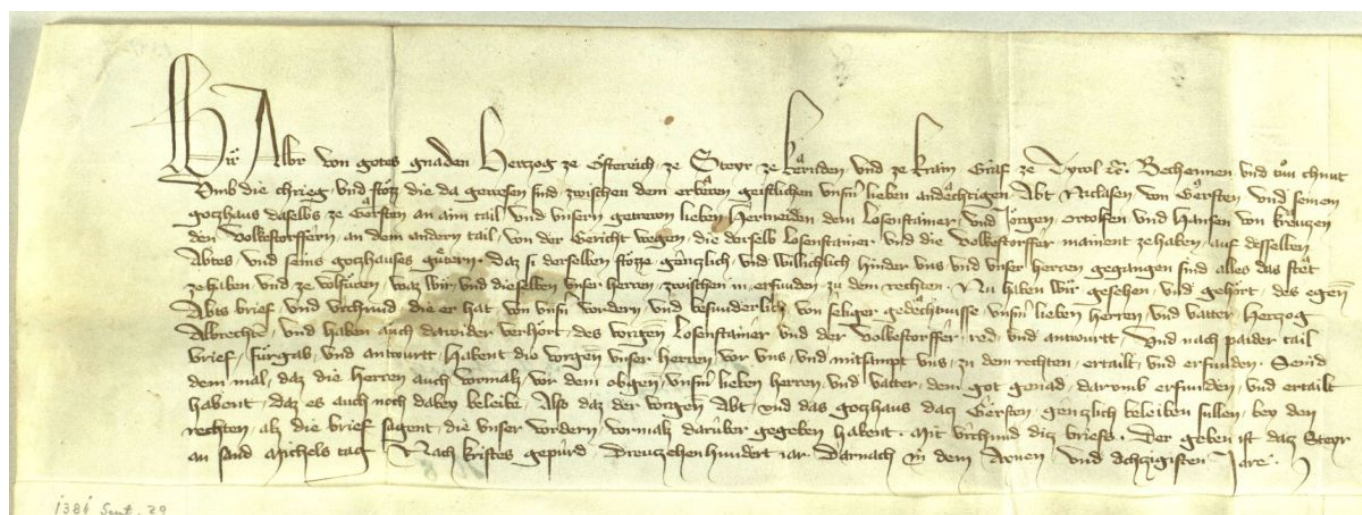 Wir Albr von gotes gnaden Herczog ze Österreich ze Steyr ze Kernden und ze Krain Graf ze Tyrol etc. Bechennen und tun chunt
Umb die chrieg und stözz die da gewesen sind zwischen dem erbern geistlichen unserm lieben andechtigen Abt Niclasen von Gersten und seinem
gotzhaus daselbs ze Gersten an aim tail und unsern getrewn lieben Hertneiden dem Losenstainer und Jörgen ortolfen und Hansen von Kreuzen
den Volkestorffern an dem andern tail von der Gericht wegen die derselb Losenstainer und die Volkestorffer mainent zehaben auf desselben
Abtes und seins gotzhauses gütern daz si derselben stözze genczlich und willichlich hinder uns und unser herren gegangen sind alles das stet
zehaben und ze volfüren waz wir und dieselben unser herren zwischen in erfunden zu dem rechten Nu haben wir gesehen und gehört des egen
Abts brief und urchund die er hat von unsern vordern und besunderlich von seliger gedechtnusse unserm lieben herren und vatter Herczog
Albrechten und haben auch dawider verhört des vorgen Losenstainer und der Volkestorffer red und antwurtt Und nach paider tail
brief fürgab und antwurtt Habent die vorgen unser herren vor uns und mitsampt uns zu dem rechten ertailt und erfunden Seind
dem mal daz die herren auch vormalz vor dem obigen unserm lieben herren und vatter dem got genad darumb erfunden und ertailt
habent daz es auch noch dabey beleibe Also daz der vorgen Abt und das gotzhaus dacz Gersten genczlich beleiben sullen bey den
rechten alz die brief sagent die unser vordern vormalz darüber gegeben habent Mit urchund dicz briefs Der geben ist dacz Steyr
an sand Michels tag Nach kristes gepürd Dreuczehenhundert iar Darnach in dem und Achczigisten Jare
1386 Sept. 29